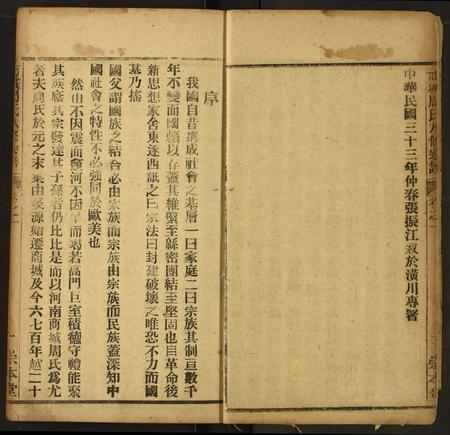 中華民國三十三年仲春張振江叙於潢川專署
序
我國自昔搆成社會之基層一曰家庭二曰宗族其制亘數千
年不變而國賴以存蓋其維繫至緜密團結至堅固也自革命後
新思想家舍東逐西詆之曰宗法曰封建破壞之唯恐不力而國
基乃搖
國父謂國族之結合必由家族而宗族由宗族而民族蓋深知中
國社會之特性不必強同於歐美也
然山不因震而頹河不因旱而竭若高門巨室積德守禮能聚
其族廕其宗發達其子孫者仍比比是而以河南商城周氏爲尤
著夫周氏於元之末葉由婺源始遷商城及今六七百年越二十
一
崇本堂